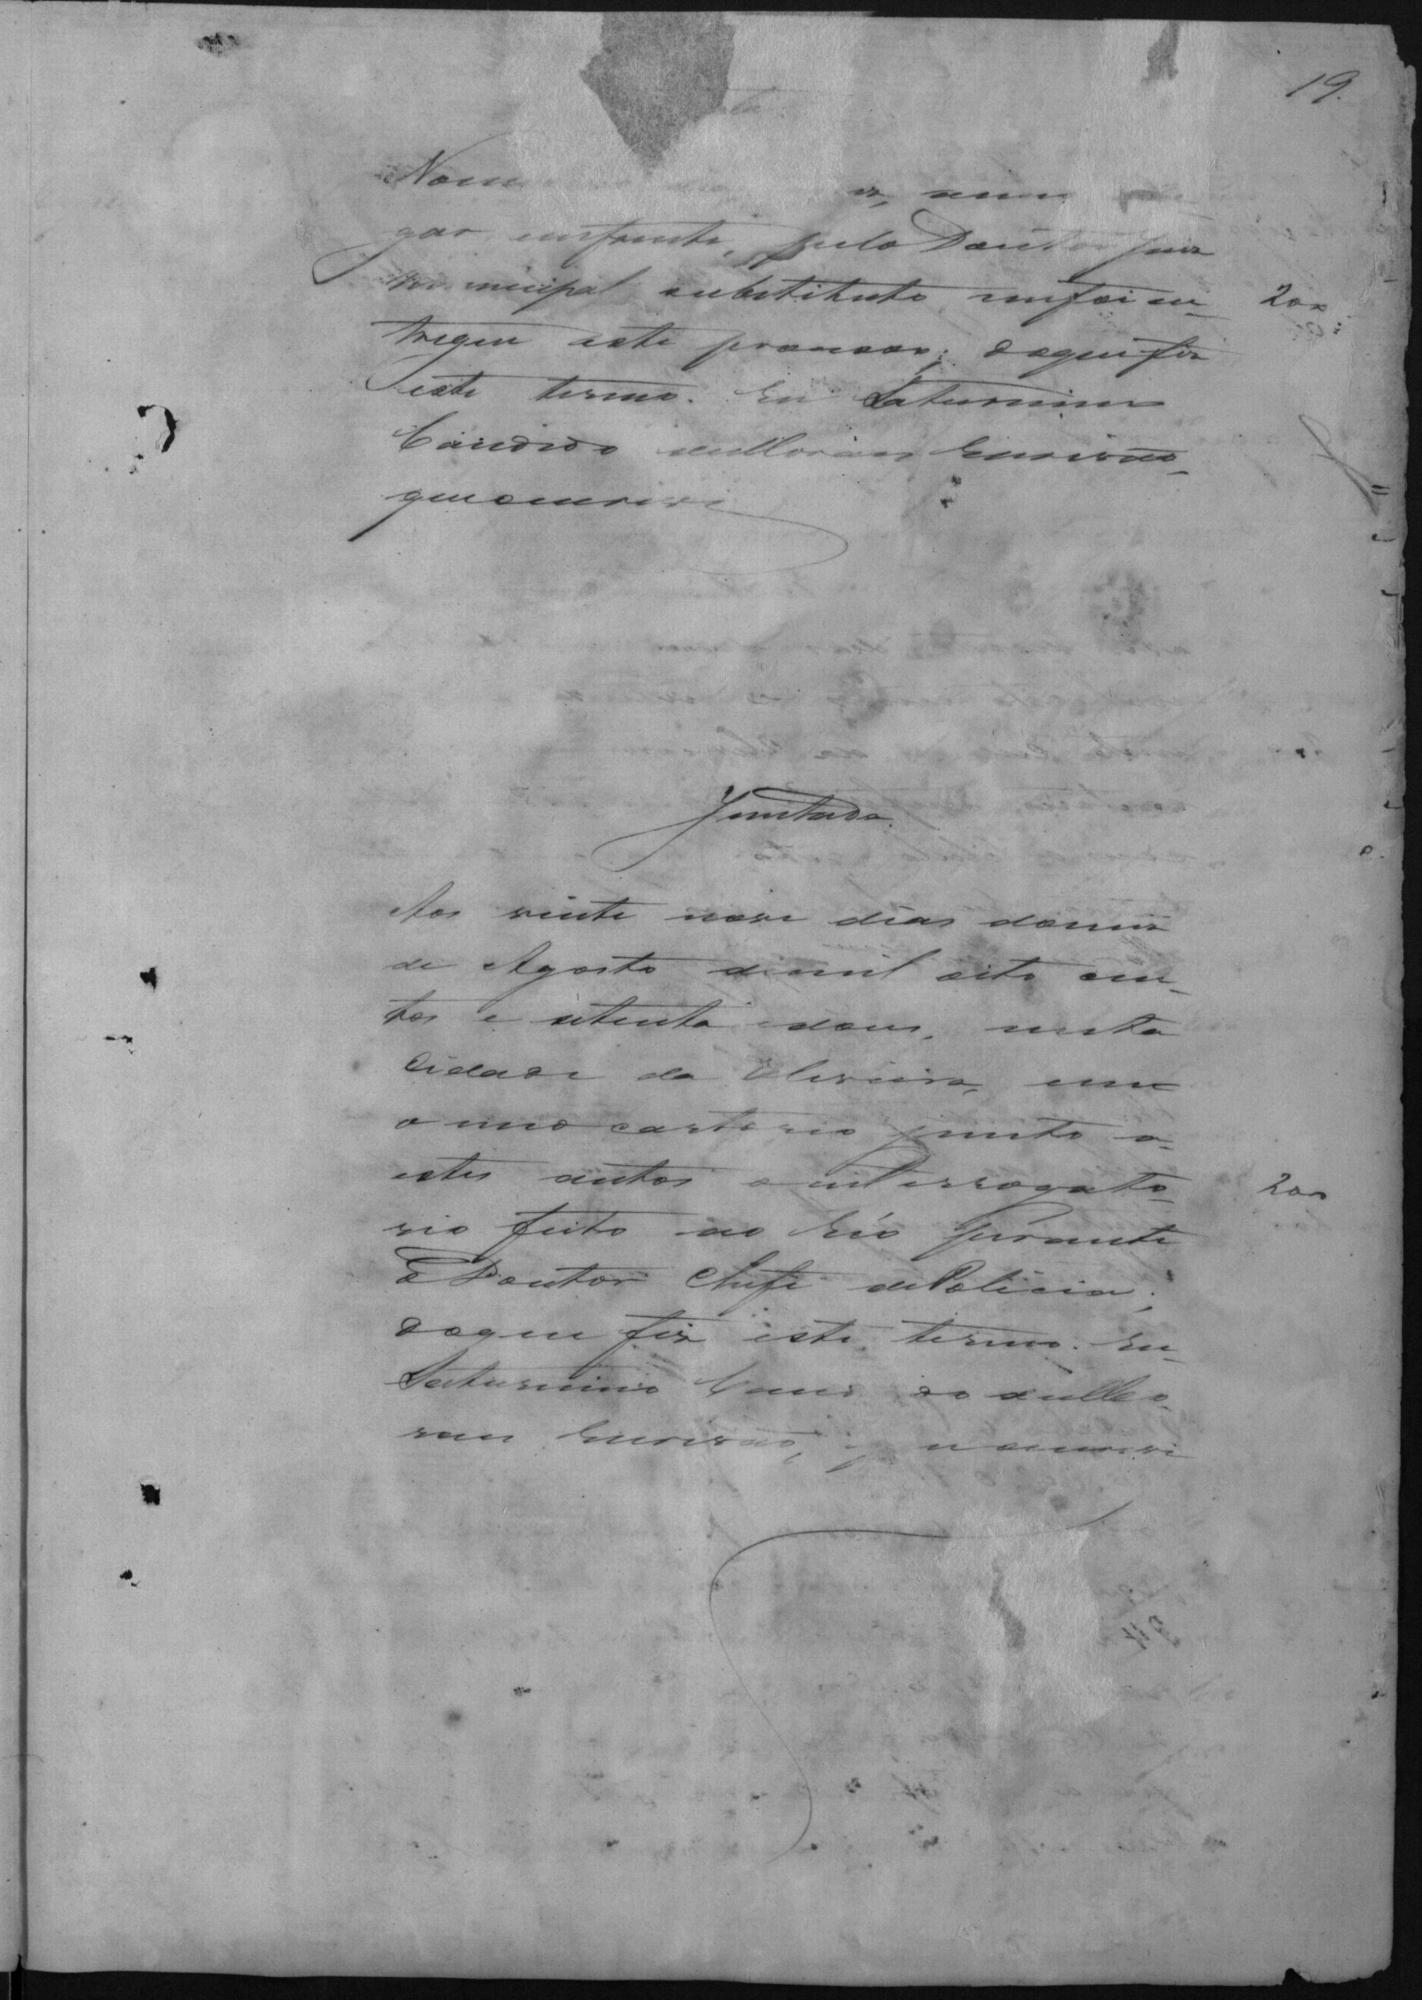 19.
No mes
gar enfrente, pelo Doutor Juis
Municipal substituto, me foi en- 200
tregue este processo; do que fis
este termo. Eu Saturnino
Candido Escrivão
que o escrevi
Juntada.
Aos vinte nove dias do mes
de Agosto de mil oito cen-
tos e setenta e dous, nesta
Cidade da em
o meo cartorio junto a
estes autos o interrogato- 200
rio feito ao Réo perante
o Doutor Chefe de Policia;
do que fis este termo. Eu
Saturnino Candido
Escrivão, que o escrevi